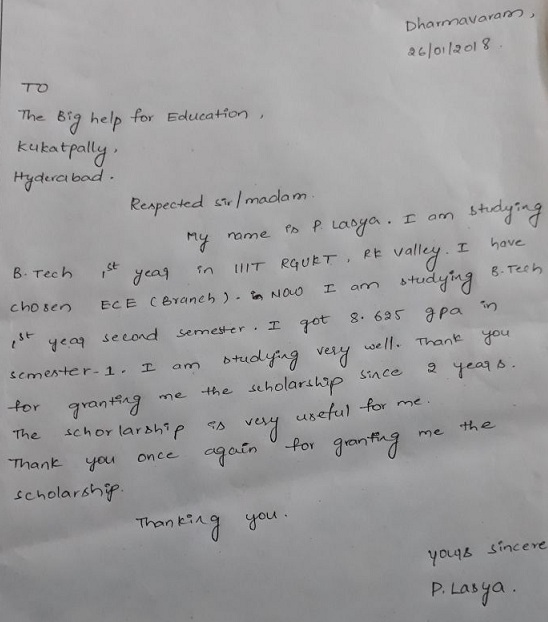 Dharmavaram,
26/01/2018.
TO
The Big help for Education,
Kukatpally,
Hyderabad.
Respected sir/madam.
My name is P. Lasya. I am studying
B. Tech 1st year in IIIT RGUKT, RK Valley. I have
chosen ECE (Branch). Now I am studying B.Tech
1st year second semester. I got 8.625 gpa in
semester-1. I am studying very well. Thank you
for granting me the scholarship since 2 years.
The schorlarship is very useful for me.
Thank you once again for granting me the
scholarship.
Thanking you.
yours sincere
P. Lasya.